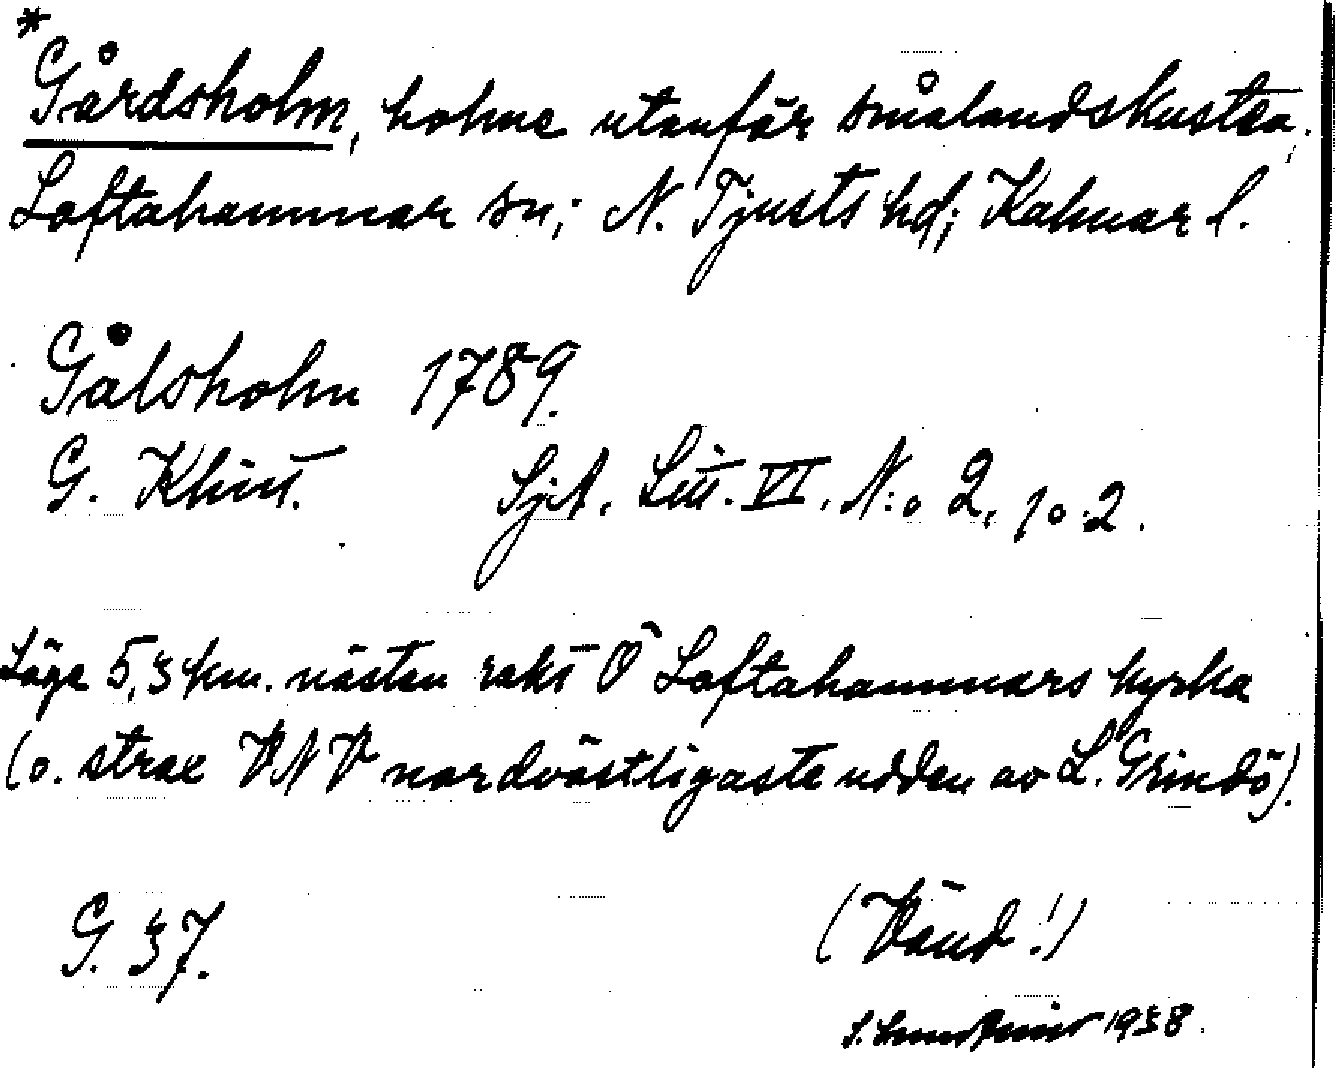 *Gårdsholm, holme utanför smålandskusten.
Loftahammar sn; N. Tjusts hd; Kalmar l.
Gålsholm 1789.
G. Klint. SjA. Litt. VI. N:o 2, 1 o. 2.
Läge 5,3 km. nästan rakt Ö Loftahammars kyrka
(o. strax VNV nordvästligaste udden av L. Grindö).
G. 37. (Vänd!)
1938